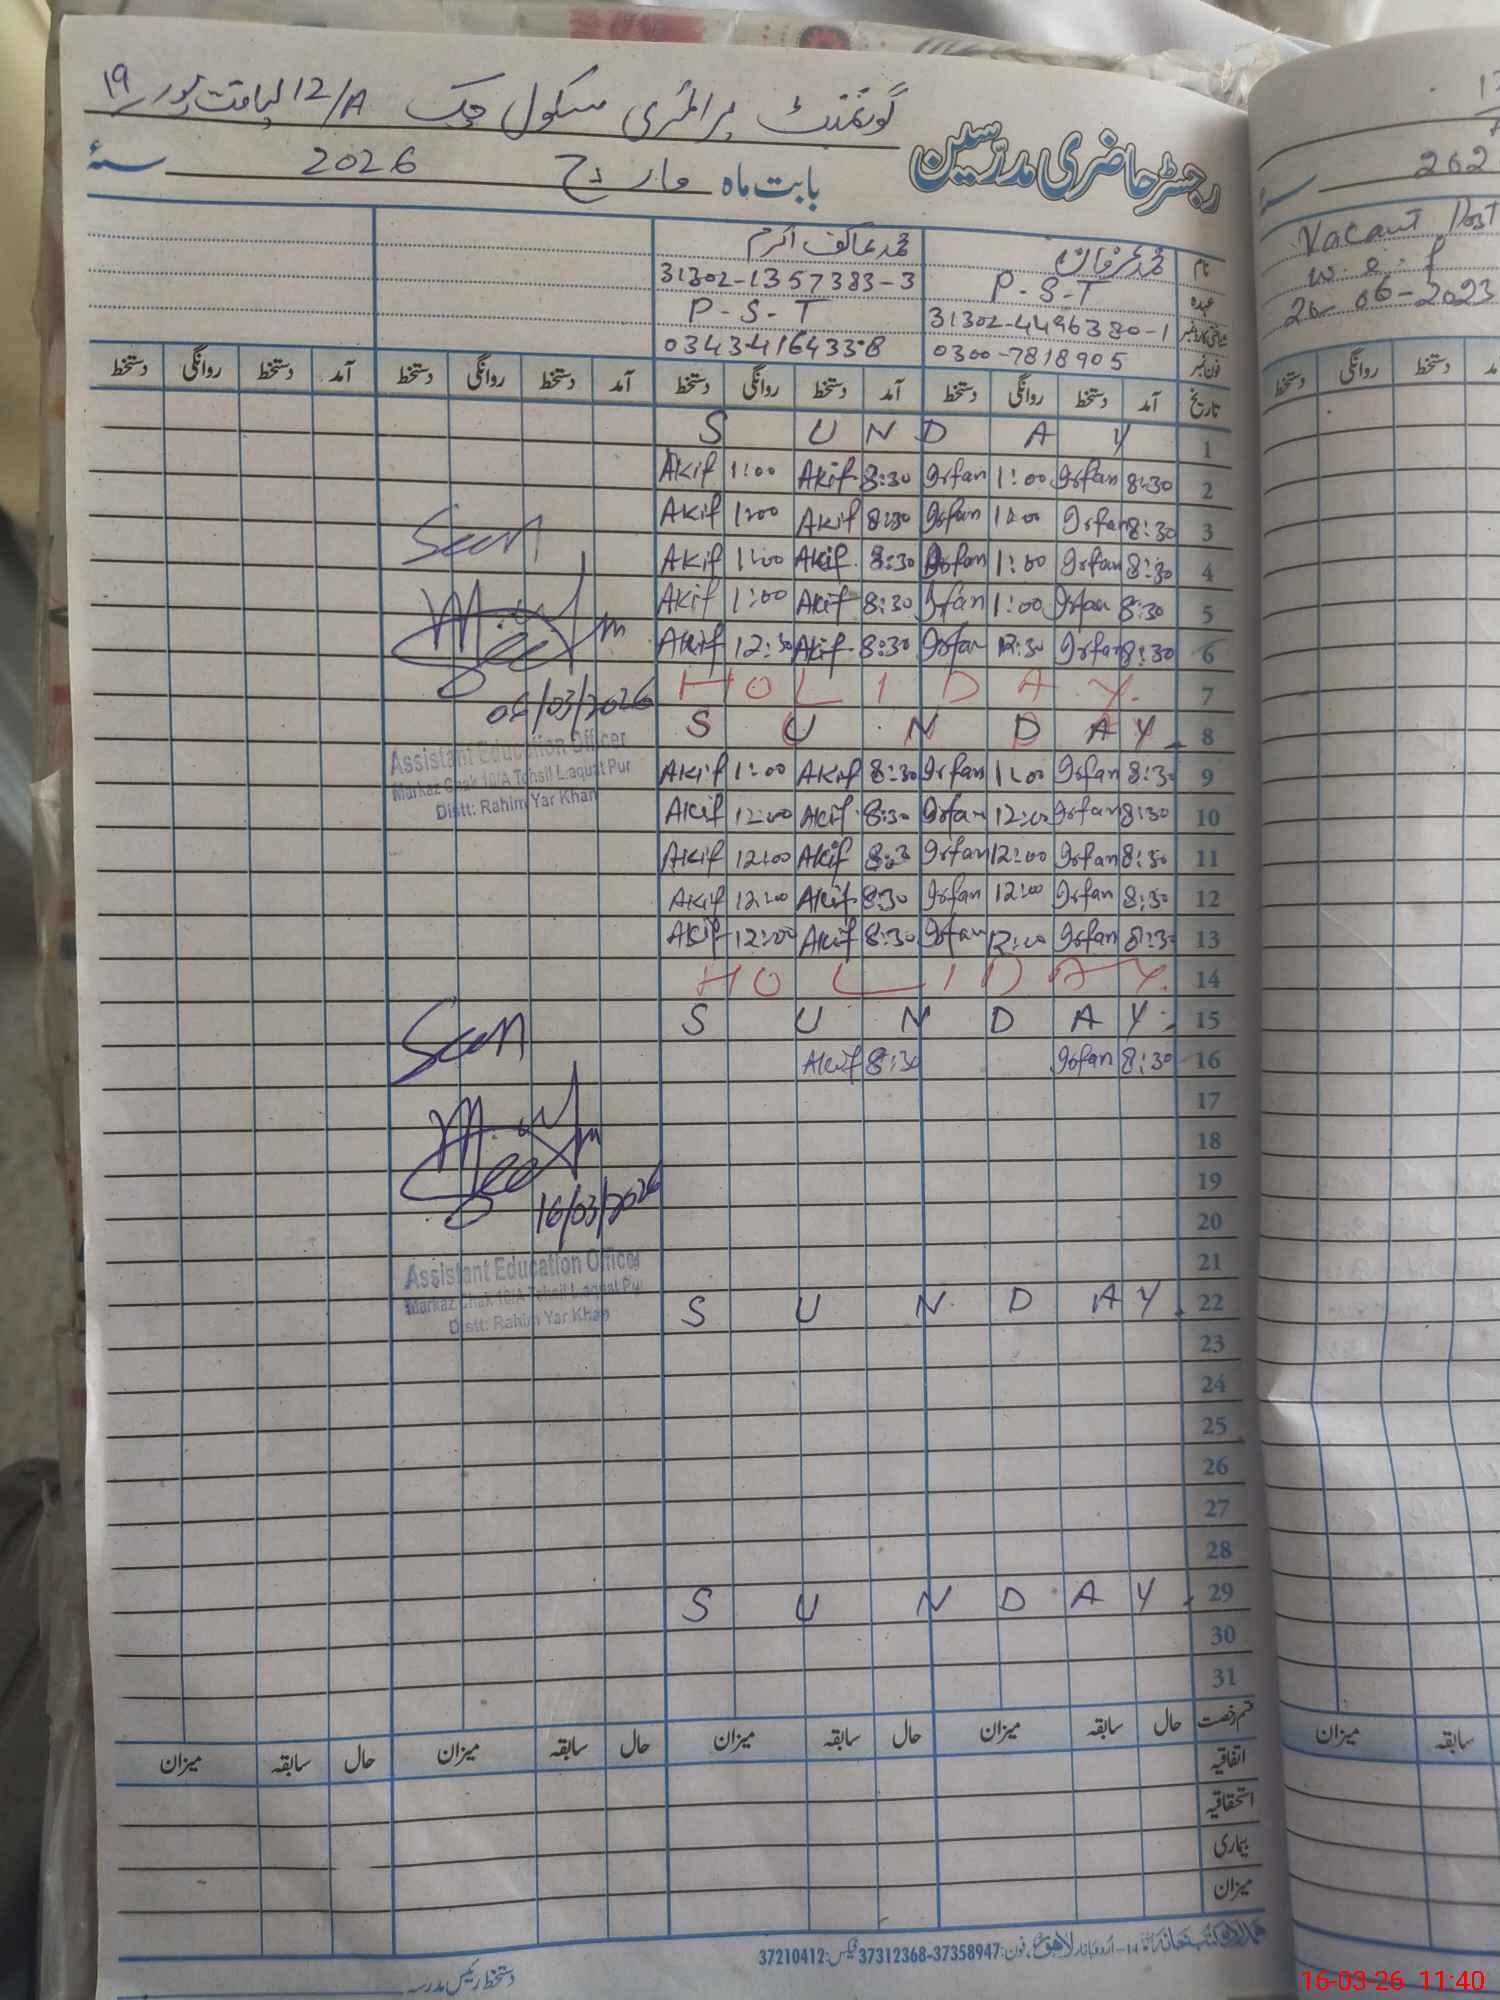 گورنمنٹ پرائمری سکول چک 12/A لیاقت پور
رجسٹر حاضری مدرسین
بابت ماہ مارچ 2026 سنۂ
نام محمد عرفان محمد عاکف اکرم
عہدہ P-S-T 31302-1357383-3
شناختی کارڈ نمبر 31302-4496380-1 P-S-T
فون نمبر 0300-7818905 0343-4164338
تاریخ آمد دستخط روانگی دستخط آمد دستخط روانگی دستخط آمد دستخط روانگی دستخط آمد دستخط روانگی دستخط
S U N D A Y 1
Akif 1:00 Akif 8:30 Irfan 1:00 Irfan 8:30 2
Akif 1:00 Akif 8:30 Irfan 1:00 Irfan 8:30 3
Akif 1:00 Akif 8:30 Irfan 1:00 Irfan 8:30 4
Akif 1:00 Akif 8:30 Irfan 1:00 Irfan 8:30 5
Akif 12:30 Akif 8:30 Irfan 12:30 Irfan 8:30 6
H O L I D A Y. 7
S U N D A Y. 8
Akif 1:00 Akif 8:30 Irfan 1:00 Irfan 8:30 9
Akif 12:00 Akif 8:30 Irfan 12:00 Irfan 8:30 10
Akif 12:00 Akif 8:3 Irfan 12:00 Irfan 8:30 11
Akif 12:00 Akif 8:30 Irfan 12:00 Irfan 8:30 12
Akif 12:00 Akif 8:30 Irfan 12:00 Irfan 8:30 13
H O L I D A Y. 14
S U N D A Y. 15
Akif 8:30 Irfan 8:30 16
17
18
19
20
21
S U N D A Y. 22
23
24
25
26
27
28
S U N D A Y. 29
30
31
Seen
06/03/2026
Assistant Education Officer
Markaz Chak 10/A Tehsil Liaquat Pur
Distt: Rahim Yar Khan
Seen
16/03/2026
Assistant Education Officer
Markaz Chak 10/A Tehsil Liaquat Pur
Distt: Rahim Yar Khan
قسم رخصت حال سابقہ میزان حال سابقہ میزان حال سابقہ میزان حال سابقہ میزان
اتفاقیہ
استحقاقیہ
بیماری
میزان
اُردو بازار لاہور، فون: 37358947-37312368 فیکس: 37210412
دستخط رئیس مدرسہ
202
Vacant Post
w.e.f
26-06-2023
دستخط روانگی دستخط
میزان سابقہ
16-03-26 11:40